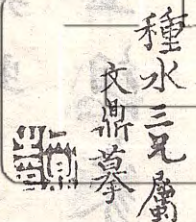 種水三兄屬
文鼎摹